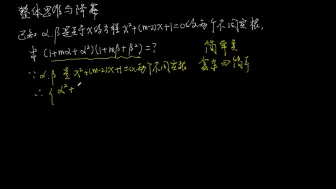 整体思维与降幂
已知 α.β 是关于x的方程 x²+(m-2)x+1=0的两个不同实根,
求 (1+mα+α²)(1+mβ+β²)=?
∵ α.β 是 x²+(m-2)x+1=0的两个不同实根
∴ { α²+